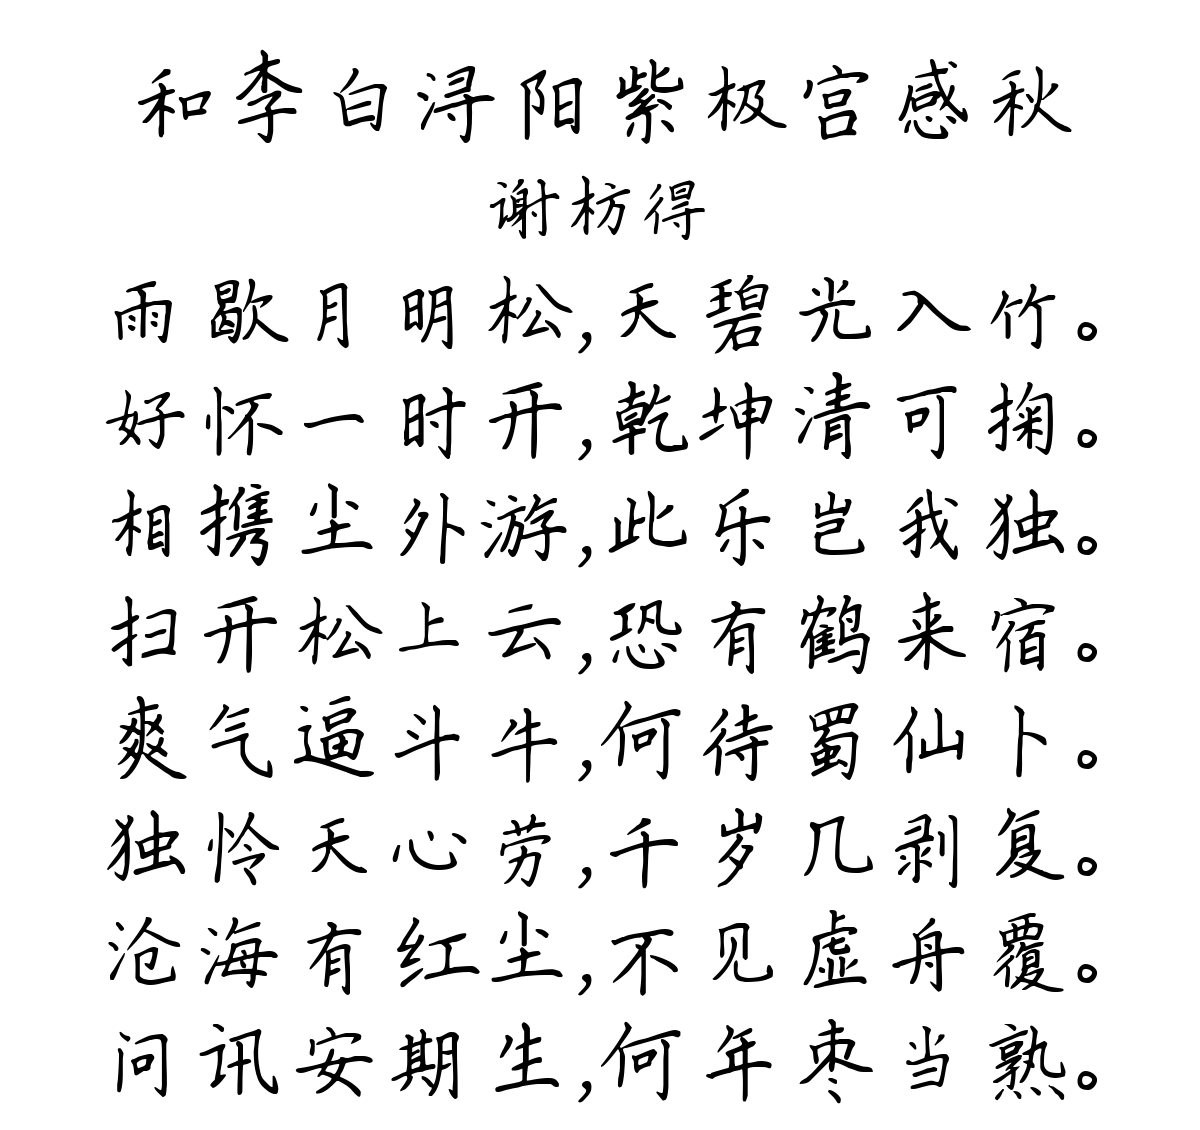 和李白浔阳紫极宫感秋
谢枋得
雨歇月明松,天碧光入竹。
好怀一时开,乾坤清可掬。
相携尘外游,此乐岂我独。
扫开松上云,恐有鹤来宿。
爽气逼斗牛,何待蜀仙卜。
独怜天心劳,千岁几剥复。
沧海有红尘,不见虚舟覆。
问讯安期生,何年枣当熟。